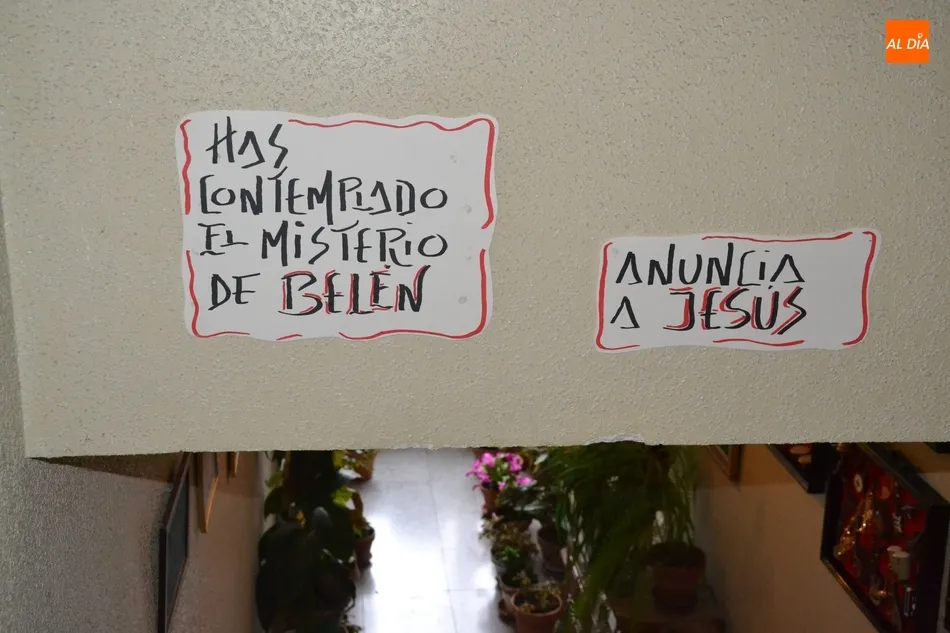 AL DÍA
HAS
CONTEMPLADO
EL MISTERIO
DE BELÉN
ANUNCIA
A JESÚS